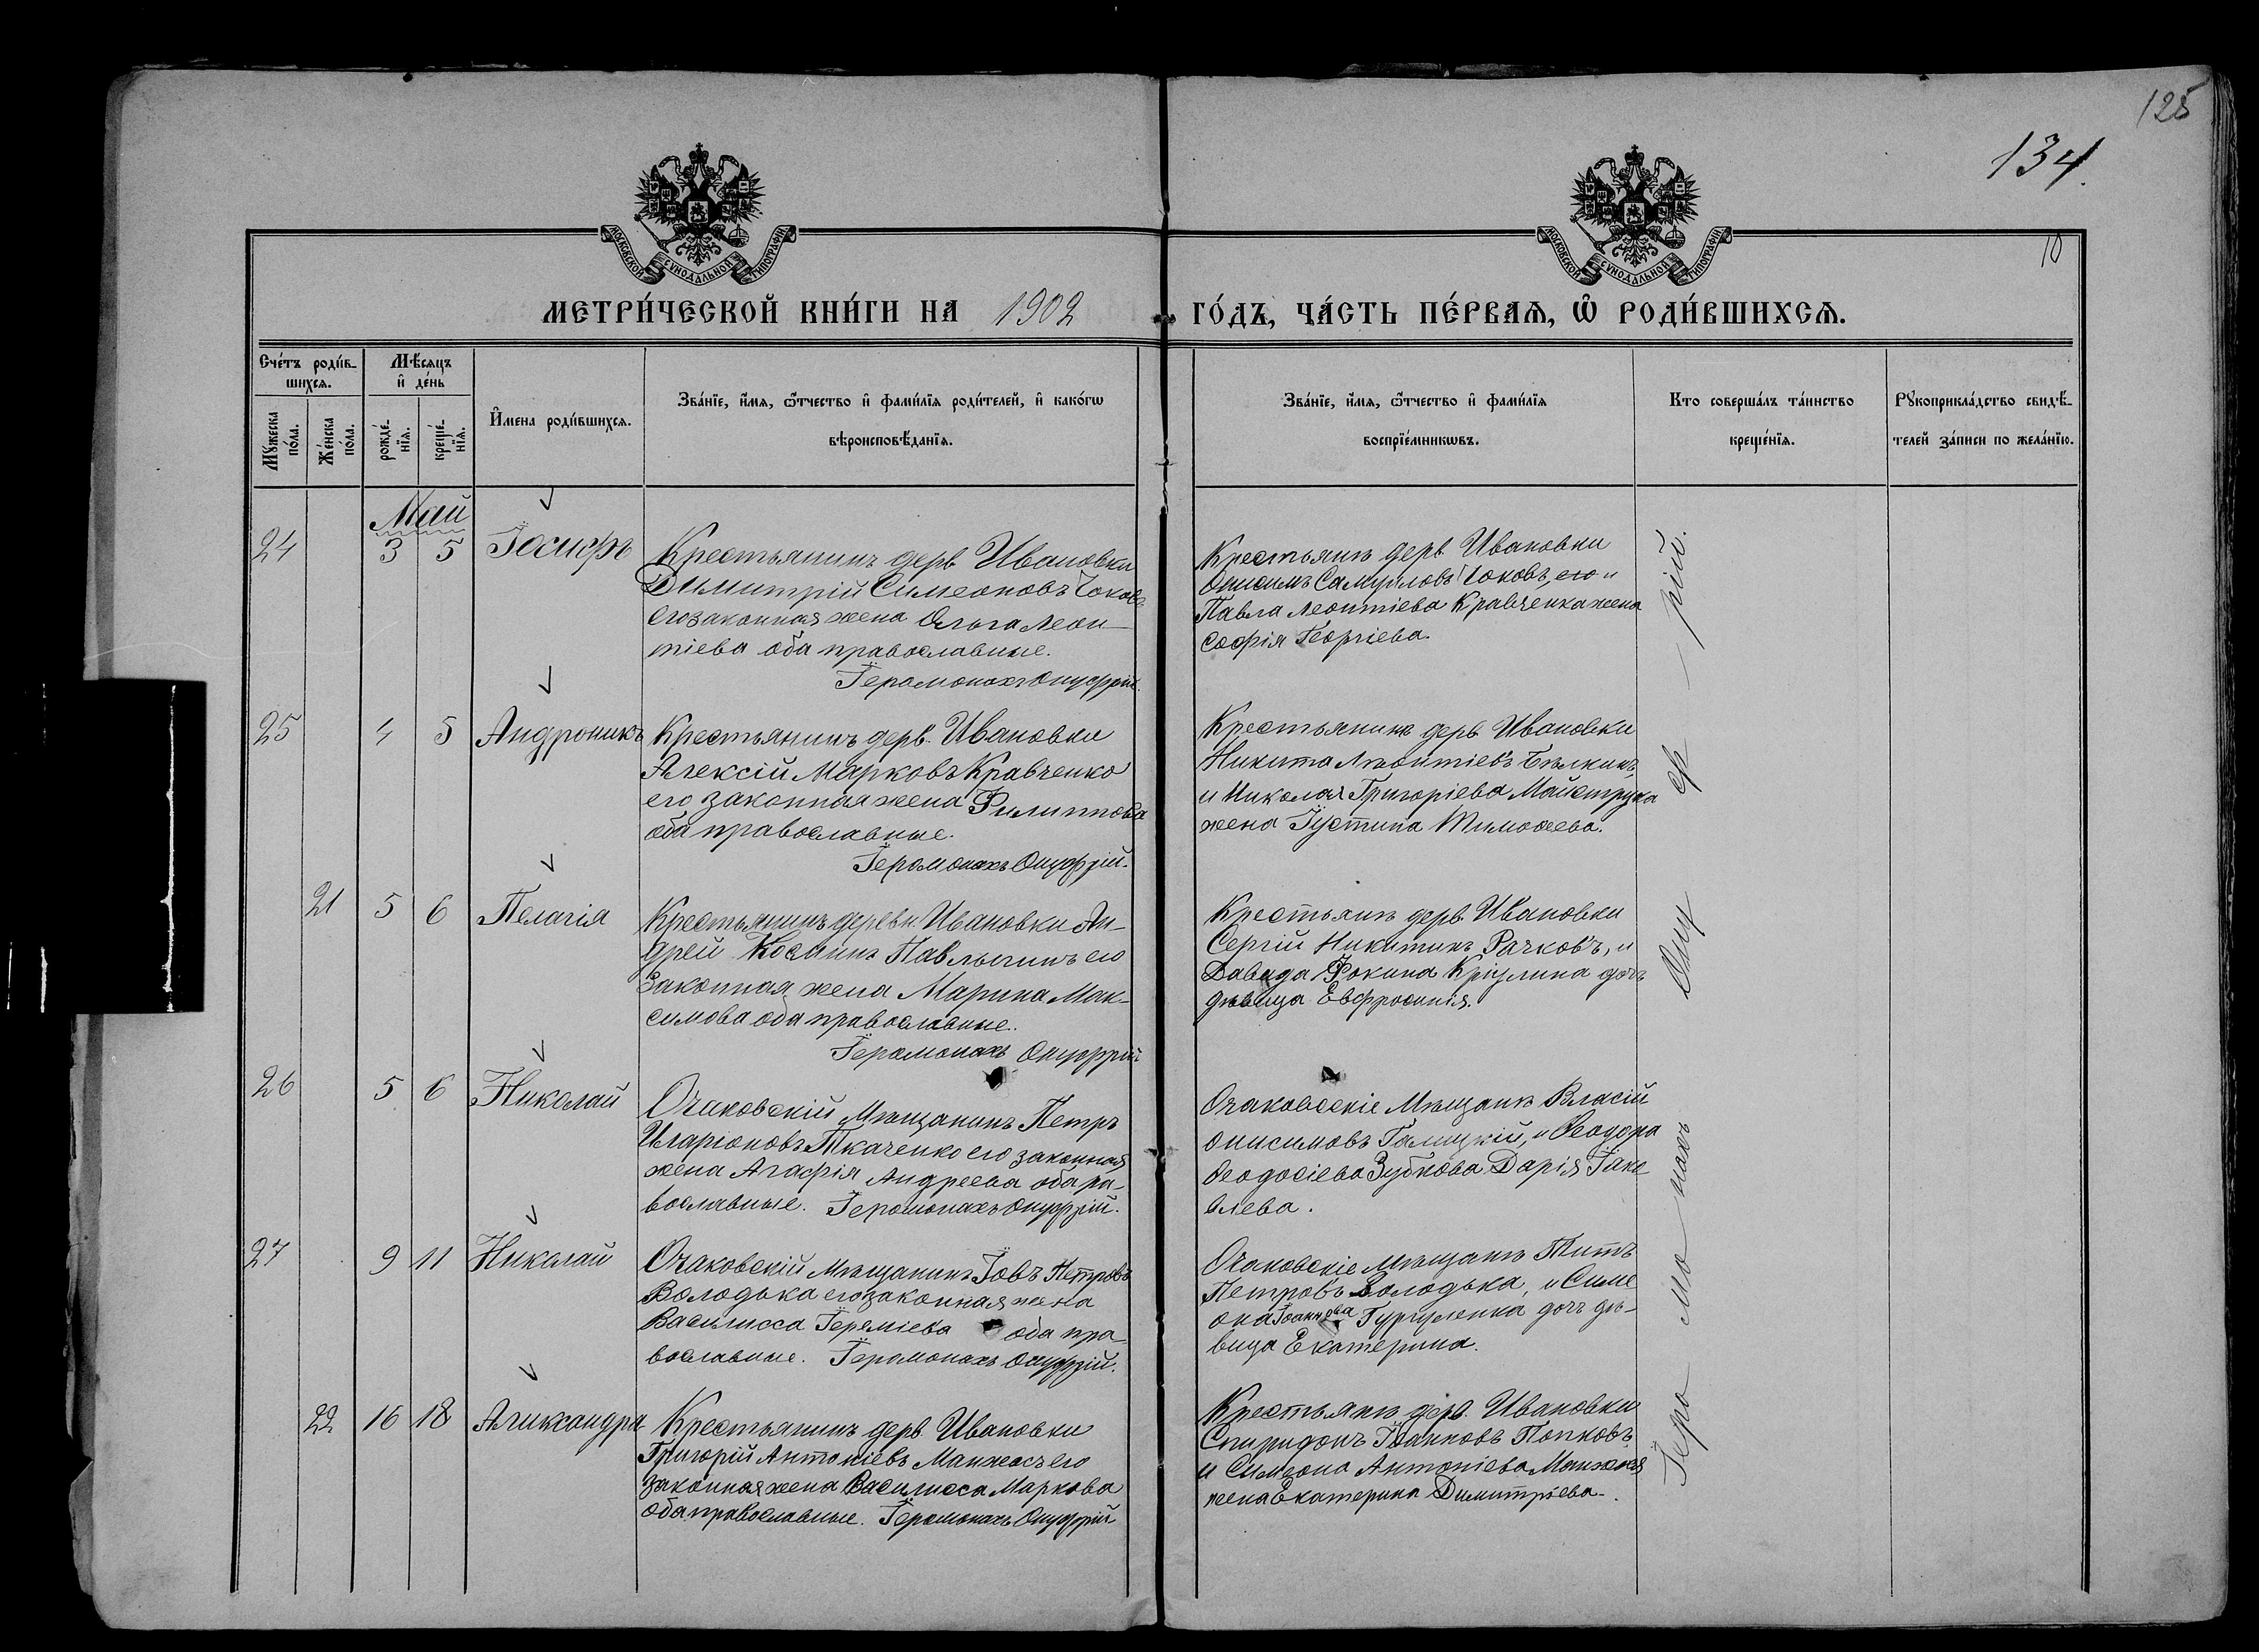 125
134.
10
МОСКОВСКОЙ СѴНОДАЛЬНОЙ ТИПОГРАФІИ
МОСКОВСКОЙ СѴНОДАЛЬНОЙ ТИПОГРАФІИ
МЕТРИ́ЧЕСКОЙ КНИ́ГИ НА 1902
ГО́ДЪ, ЧА́СТЬ ПЕ́РВАѦ, Ѡ҆ РОДИ́ВШИХСѦ.
Сче́тъ роди́в-
шихсѧ.
Мꙋ́жеска
по́ла.
Же́нска
по́ла.
Мѣ́сѧцъ
и҆ де́нь
рожде́-
нїѧ.
креще́-
нїѧ.
И҆мена роди́вшихсѧ.
Зва́нїе, и҆́мѧ, ѻ҆́тчество и҆ фами́лїѧ роди́телей, и҆ како́гѡ
вѣроисповѣ́данїѧ.
Зва́нїе, и҆́мѧ, ѻ҆́тчество и҆ фами́лїѧ
воспрїе́мникѡвъ.
Кто соверша́лъ та́инство
креще́нїѧ.
Рꙋкоприкла́дство свидѣ́-
телей за́писи по жела́нїю.
Май
24 3 5 Іосифъ
Крестьянинъ дерв. Ивановки
Димитрій Симеоновъ Чоковъ
его законная жена Ольга Леон-
тіева оба православные.
Іеромонахъ Онуфрій.
Крестьянъ дерв. Ивановки
Онисимъ Самуиловъ Чоковъ, его и
Павла Леонтіева Кравченка жена
Софія Георгіева.
25 4 5 Андроникъ
Крестьянинъ дерв. Ивановки
Алексій Марковъ Кравченко
его законная жена Филиппова
оба православные.
Іеромонахъ Онуфрій.
Крестьянинъ дерв. Ивановки
Никита Леонтіевъ Бѣлкинъ,
и Николая Григоріева Майструка
жена Іустина Тимоѳеева.
21 5 6 Пелагія
Крестьянинъ деревн. Ивановки Ан-
дрей Космин Павлычинъ его
законная жена Марина Мак-
симова оба православные.
Іеромонахъ Онуфрій
Крестьянъ дерв. Ивановки
Сергій Никитинъ Рачковъ, и
Давида Фокина Кріулина дочь
дѣвица Евфросинія.
26 5 6 Николай
Очаковскій Мѣщанинъ Петръ
Иларіоновъ Ткаченко его законная
жена Агафія Андреева оба пра-
вославные. Іеромонахъ Онуфрій.
Очаковскіе Мѣщанъ Власій
Онисимовъ Галицкій, и Ѳеодора
Ѳеодосіева Зубкова Дарія Іаке
влева.
27 9 11 Николай
Очаковскій мѣщанинъ Іовъ Петровъ
Володька его законная жена
Василисса Іереміева оба пра-
вославные. Іеромонахъ Онуфрій.
Очаковскіе мѣщанъ Титъ
Петровъ Володька, и Симе
она Іоаннова Гургуленка дочь дѣ-
вица Екатерина.
22 16 18 Александра
Крестьянинъ дерв. Ивановки
Григорій Антоніевъ Манжосъ его
законная жена Василисса Маркова
оба православные. Іеромонахъ Онуфрій
Крестьянъ дерв. Ивановки
Спиридонъ Іоанновъ Попковъ
и Симеона Антоніева Манжоса
жена Екатерина Димитріева.
Іеро мо нахъ Ону ф рій.